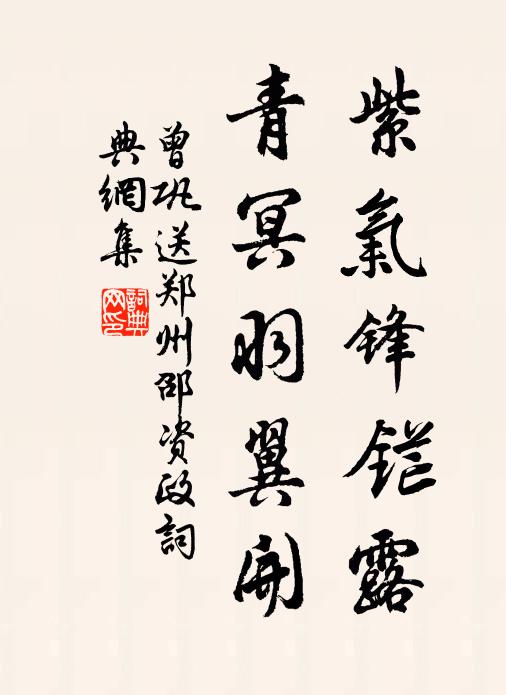 紫氣鋒鋩露
青冥羽翼開
曾巩送郑州邵资政詞
典網集
詞典網印